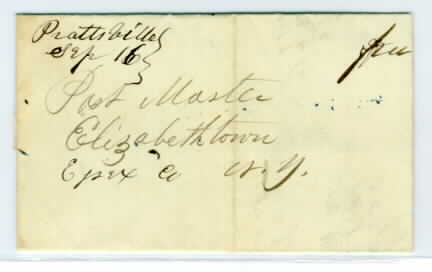 Prattsville
Sep 16
free
Post Master
Elizabethtown
Essex Co N. Y.